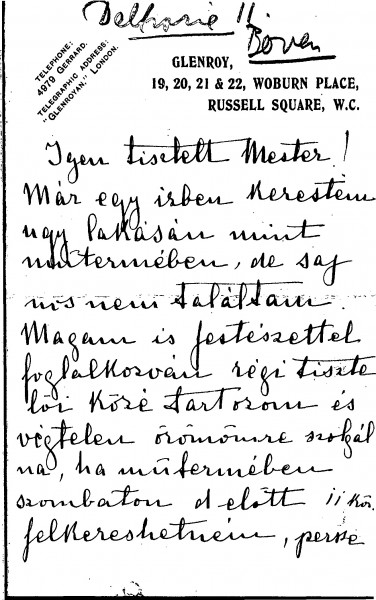 Delhorie 11.
Boven
TELEPHONE:
4979 GERRARD.
TELEGRAPHIC ADDRESS:
"GLENROYAN," LONDON.
GLENROY,
19, 20, 21 & 22, WOBURN PLACE,
RUSSELL SQUARE, W.C.
Igen tisztelt Mester!
Már egy izben kerestem
ugy lakásán mint
műtermében, de saj
nos nem találtam.
Magam is festészettel
foglalkozván régi tiszte
lői közé tartozom és
végtelen örömömre szolgál
na, ha műtermében
szombaton d előtt 11 kor
felkereshetném, persze